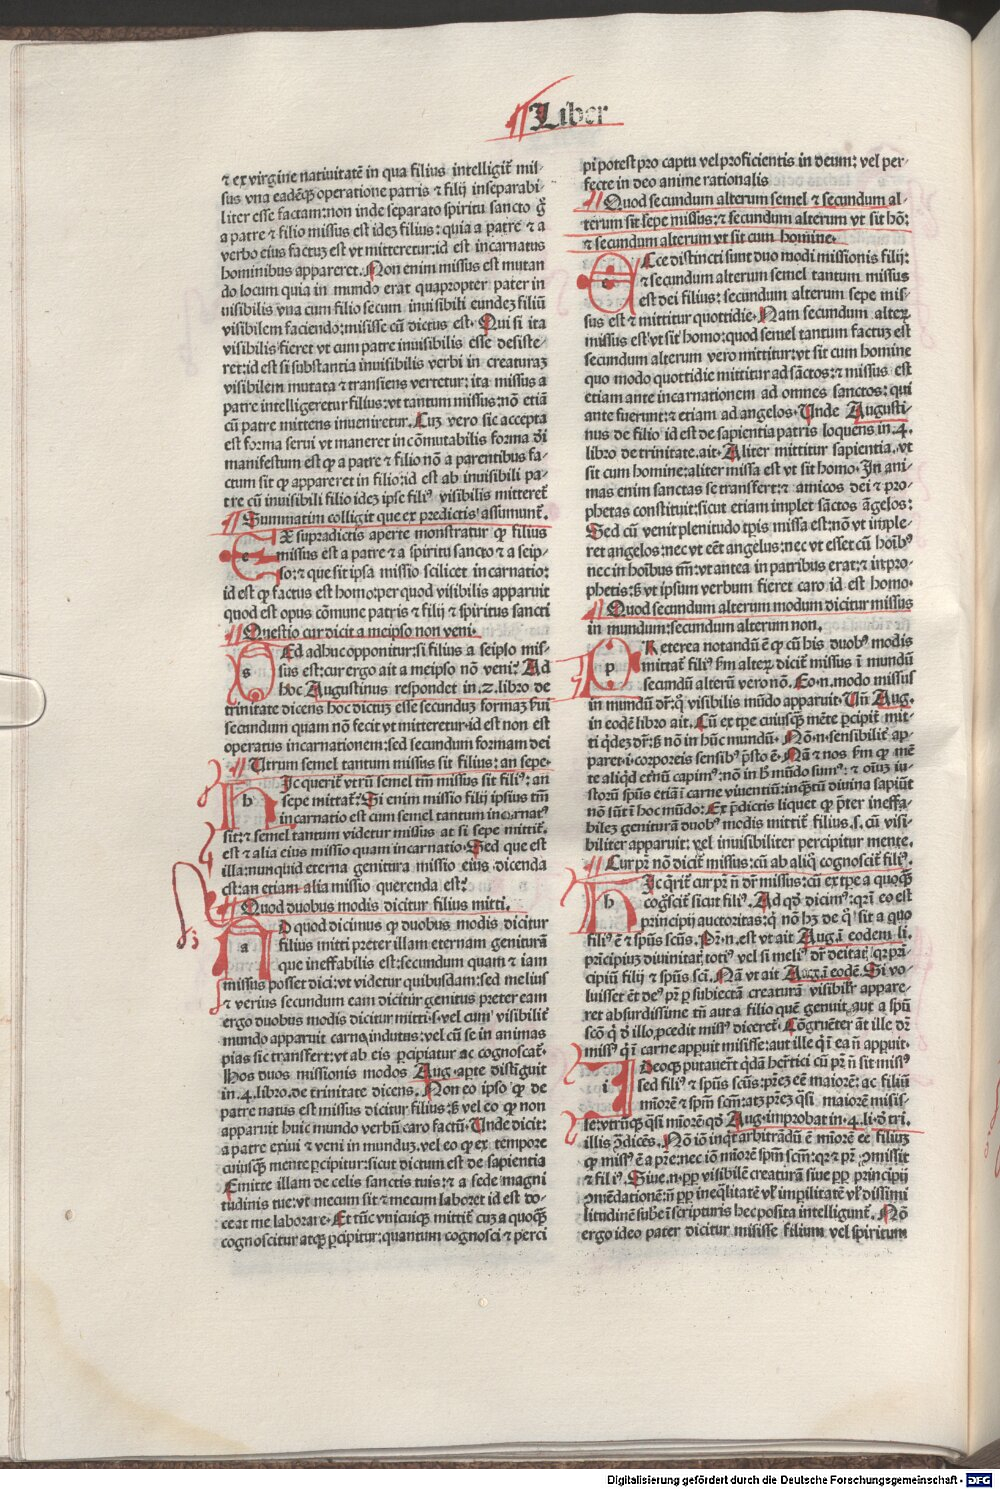 Liber
⁊ ex virgine natiuitatē in qua filius intelligit᷑ mis-
sus vna eadēq̄ operatione patris ⁊ filij inseparabi-
liter esse factam: non inde separato spiritu sancto g̊
a patre ⁊ filio missus est idez filius: quia a patre ⁊ a
verbo eius factuz est vt mitteretur: id est incarnatus
hominibus appareret. Non enim missus est mutan
do locum quia in mundo erat quapropter pater in
uisibilis vna cum filio secum inuisibili eundez filiū
visibilem faciendo: misisse cū dictus est. Qui si ita
visibilis fieret vt cum patre inuisibilis esse desiste-
ret: id est si substantia inuisibilis verbi in creaturaz
visibilem mutata ⁊ transiens verteretur: ita missus a
patre intelligeretur filius: vt tantum missus: nō etiā
cū patre mittens inueniretur. Cuz vero sic accepta
est forma serui vt maneret incōmutabilis forma dī
manifestum est ꝙ a patre ⁊ filio nō a parentibus fa-
ctum sit ꝙ appareret in filio: id est ab inuisibili pa-
tre cū inuisibili filio idez ipse filiꝰ visibilis mitteret᷑
Summatim colligit que ex predictis assumunt᷑.
EX supradictis aperte monstratur ꝙ filius
missus est a patre ⁊ a spiritu sancto ⁊ a seip-
so: ⁊ que sit ipsa missio scilicet incarnatio:
id est ꝙ factus est homo: per quod visibilis apparuit
quod est opus cōmune patris ⁊ filij ⁊ spiritus sancti
Questio cur dicit a meipso non veni.
SEd adhuc opponitur: si filius a seipso mis-
sus est: cur ergo ait a meipso nō veni? Ad
hoc Augustinus respondet in .2. libro de
trinitate dicens hoc dictuz esse secunduz formaz ẜui
secundum quam nō fecit vt mitteretur: id est non est
operatus incarnationem: sed secundum formam dei
Utrum semel tantum missus sit filius: an sepe.
HIc querit᷑ vtrū semel tm̄ missus sit filiꝰ: an
sepe mittat᷑: Si enim missio filij ipsius tm̄
incarnatio est cum semel tantum incarnatꝰ
sit: ⁊ semel tantum videtur missus at si sepe mittit᷑.
est ⁊ alia eius missio quam incarnatio. Sed que est
illa: nunquid eterna genitura missio eius dicenda
est: an etiam alia missio querenda est?
Quod duobus modis dicitur filius mitti.
AD quod dicimus ꝙ duobus modis dicitur
filius mitti preter illam eternam geniturā
que ineffabilis est: secundum quam ⁊ iam
missus posset dici: vt videtur quibusdam: sed melius
⁊ verius secundum eam dicitur genitus preter eam
ergo duobus modis dicitur mitti .s. vel cum visibilit᷑
mundo apparuit carne indutus: vel cū se in animas
pias sic transfert: vt ab eis ꝑcipiatur ac cognoscat᷑.
Hos duos missionis modos Aug. apte distiguit
in .4. libro. de trinitate dicens. Non eo ipso ꝙ de
patre natus est missus dicitur filius: ẜ vel eo ꝙ non
apparuit huic mundo verbū caro factū. Unde dicit:
a patre exiui ⁊ veni in munduz. vel eo ꝙ ex tempore
cuiusq̄ mente ꝑcipitur: sicut dictum est de sapientia
Emitte illam de celis sanctis tuis: ⁊ a sede magni
tudinis tue: vt mecum sit ⁊ mecum laboret id est do-
ceat me laborare. Et tūc vnicuiqꝫ mittit᷑ cuz a quoqꝫ
cognoscitur atqꝫ ꝑcipitur: quantum cognosci ⁊ perci
pi potest pro captu vel proficientis in deum: vel per-
fecte in deo anime rationalis
Quod secundum alterum semel ⁊ secundum al-
terum sit sepe missus: ⁊ secundum alterum vt sit hō:
⁊ secundum alterum vt sit cum homine.
ECce distincti sunt duo modi missionis filij:
⁊ secundum alterum semel tantum missus
est dei filius: secundum alterum sepe mis-
sus est ⁊ mittitur quottidie. Nam secundum alteꝝ
missus est vt sit homo: quod semel tantum factuz est
secundum alterum vero mittitur: vt sit cum homine
quo modo quottidie mittitur ad sāctos: ⁊ missus est
etiam ante incarnationem ad omnes sanctos: qui
ante fuerunt: ⁊ etiam ad angelos. Unde Augusti-
nus de filio id est de sapientia patris loquens in .4.
libro de trinitate. ait. Aliter mittitur sapientia. vt
sit cum homine: aliter missa est vt sit homo. In ani-
mas enim sanctas se transfert: ⁊ amicos dei ⁊ pro-
phetas constituit: sicut etiam implet sāctos āgelos:
Sed cū venit plenitudo tp̄is missa est: nō vt imple-
ret angelos: nec vt eēt angelus: nec vt esset cū hoībꝰ
nec in hoībus tm̄: vt antea in patribus erat: ⁊ in pro-
phetis: ẜ vt ipsum verbum fieret caro id est homo.
Quod secundum alterum modum dicitur missus
in mundum: secundum alterum non.
PReterea notandū ē ꝙ cū his duobꝰ modis
mittat᷑ filiꝰ ẜm alteꝝ dicit᷑ missus ī mundū
secundū alterū vero nō. Eo .n. modo missus
in mundū dr̄: q̄ visibilis mūdo apparuit. Un̄ Aug.
in eodē libro ait. Cū ex tꝑe cuiusqꝫ mēte ꝑcipit᷑ mit-
ti qdez dr̄: ẜ nō in hūc mundū. Nō .n. sensibilit᷑ ap-
paret .i. corporeis sensibꝰ p̄sto ē. Nā ⁊ nos ẜm ꝙ mē
te aliqd et̄nū capimꝰ: nō in hͦ mūdo sumꝰ: ⁊ oīuz iu-
storū sp̄us etiā ī carne viuentiū: inq̄tū diuina sapiūt
nō sūt ī hoc mūdo: Ex p̄dictis liquet ꝙ p̄ter ineffa-
bilez genituraz duobꝰ modis mittit᷑ filius .s. cū visi-
biliter apparuit: vel inuisibiliter percipitur mente.
Cur pr̄ nō dicit᷑ missus: cū ab aliq̊ cognoscit᷑ filiꝰ.
HIc q̄rit᷑ cur pr̄ n̄ dr̄ missus: cū ex tꝑe a quoqꝫ
cog̊scit᷑ sicut filiꝰ. Ad qd̄ dicimꝰ: qr̄ ī eo est
principij auctoritas: q̄ nō hꝫ de q̊ sit a quo
filiꝰ ē ⁊ sp̄us scūs. Pr̄ .n. est vt ait Aug. ī eodem li.
prīcipium diuinitat᷑ totiꝰ vel si meliꝰ dr̄ deitat᷑: qr̄ prī-
cipiū filij ⁊ sp̄us scī. Nā vt ait Aug. ī eodē. Si vo-
luisset ēt deꝰ pr̄ ꝑ subiectā creaturā visibilr̄ appare-
ret absurdissime tn̄ aut a filio quē genuit aut a sp̄u
scō q̄ d̄ illo ꝓcedit missꝰ diceret᷑. Cōgruēter āt ille dr̄
missꝰ q̄ ī carne apꝑuit misisse: aut ille q̄ ī ea n̄ apꝑuit.
IDeoqꝫ putauert᷑ qdā heretici cū pr̄ n̄ sit missꝰ
sed filiꝰ ⁊ sp̄us scūs: pr̄ez eē maiorē: ac filiū
miorē ⁊ sp̄m scm̄: atqꝫ pr̄ez q̄si maiorē misis-
se: vtrūqꝫ q̄si miorē: qd̄ Aug. improbat in .4. li. d̄ tri.
illis ꝯdicēs. Nō iō inqt᷑ arbitrādū ē miorē eē filiuz
ꝙ missꝰ ē a pr̄e: nec iō miorē sp̄m scm̄: qr̄ ⁊ pr̄ ꝯmissit
⁊ filiꝰ. Siue .n. ꝓꝑ visibilē creaturā siue ꝓꝑ principij
ꝯmēdationē: n̄ ꝓꝑ ineq̄litatē vl̓ imparilitatē vl̓ dissimi
litudinē sube ī scripturis hec posita intelligunt᷑. Nō
ergo ideo pater dicitur misisse filium vel spiritum
Digitalisierung gefördert durch die Deutsche Forschungsgemeinschaft - DFG